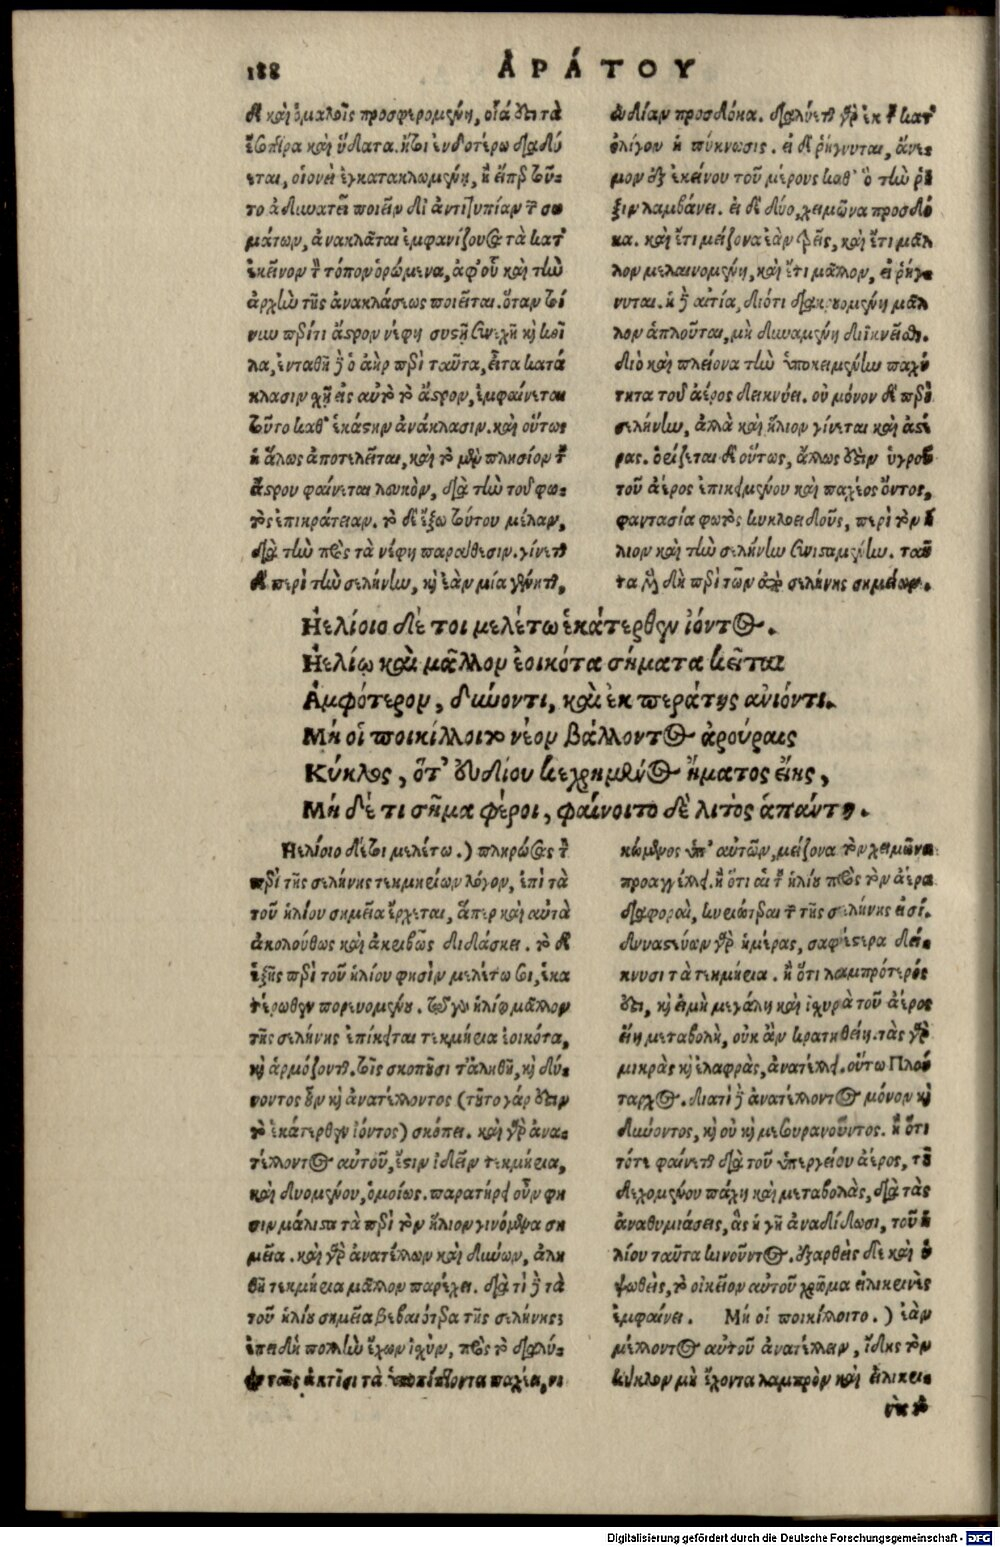 188
ΑΡΑΤΟΥ
δὲ καὶ ὁμαλοῖς προσφερομένη, οἷά ἐστι τὰ
ἔσοπτρα καὶ ὕδατα. ἤτοι ἐνδοτέρω διαδύ
εται, οἱονεὶ ἐγκατακλωμένη, ἢ εἴπερ τοῦ-
το ἀδυνατεῖ ποιεῖν δι᾽ ἀντιτυπίαν τῶν σω
μάτων, ἀνακλᾶται ἐμφανίζουσα τὰ κατ᾽
ἐκεῖνον τὸν τόπον ὁρώμενα, ἀφ᾽ οὗ καὶ τὴν
ἀρχὴν τῆς ἀνακλάσεως ποιεῖται. ὅταν τοί
νυν περί τι ἄστρον νέφη συστῇ συνεχῆ κỳ κοῖ
λα, ἐνταθῇ δὲ ὁ ἀὴρ περὶ ταῦτα, εἶτα κατά
κλασιν χῇ εἰς αὐτὸ τὸ ἄστρον, ἐμφαίνεται
τοῦτο καθ᾽ ἑκάστην ἀνάκλασιν. καὶ οὕτως
ἡ ἅλως ἀποτελεῖται, καὶ τὸ μὲν πλησίον τοῦ
ἄστρου φαίνεται λευκὸν, διὰ τὴν τοῦ φω-
τὸς ἐπικράτειαν. τὸ δὲ ἔξω τούτου μέλαν,
διὰ τὴν πρὸς τὰ νέφη παράθεσιν. γίνεται
δὲ περὶ τὴν σελήνην, καὶ ἐὰν μία γένηται,
εὐδίαν προσδόκα. διαλύεται γὰρ ἐκ τοῦ κατ᾽
ὀλίγον ἡ πύκνωσις. εἰ δὲ ῥήγνυται, ἄνε-
μον ἐξ ἐκείνου τοῦ μέρους καθ᾽ ὃ τὴν ῥῆ
ξιν λαμβάνει. εἰ δὲ δύο, χειμῶνα προσδό
κα. καὶ ἔτι μείζονα ἐὰν τρεῖς, καὶ ἔτι μᾶλ
λον μελαινομένη, καὶ ἔτι μᾶλλον, εἰ ῥήγ-
νυται. ἡ δὲ αἰτία, διότι διακρουομένη μᾶλ
λον ἁπλοῦται, μὴ δυναμένη διϊκνεῖσθαι.
διὸ καὶ πλείονα τὴν ὑποκειμένην παχύ
τητα τοῦ ἀέρος δεικνύει. οὐ μόνον δὲ περὶ
σελήνην, ἀλλὰ καὶ ἥλιον γίνεται καὶ ἀστέ
ρας. ὁρίζεται δὲ οὕτως, ἅλως ἐστὶν ὑγροῦ
τοῦ ἀέρος ἐπικειμένου καὶ παχέος ὄντος,
φαντασία φωτὸς κυκλοειδοῦς, περὶ τὸν ἥ
λιον καὶ τὴν σελήνην συνισταμένην. ταῦ
τα μὲν δὴ περὶ τῶν ἀπὸ σελήνης σημείων.
Ἠελίοιο δέ τοι μελέτω ἑκάτερθεν ἰόντος.
Ἠελίῳ καὶ μᾶλλον ἐοικότα σήματα κεῖται
Ἀμφότερον, δύνοντι, καὶ ἐκ περάτης ἀνιόντι.
Μή οἱ ποικίλλοιτο νέον βάλλοντος ἀρούραις
Κύκλος, ὅτ᾽ εὐδίου κεχρημένος ἤματος εἴης,
Μή δέ τι σῆμα φέροι, φαίνοιτο δὲ λιτὸς ἁπάντη.
Ἠελίοιο δέ τοι μελέτω.) πληρώσας τὸν
περὶ τῆς σελήνης τεκμηρίων λόγον, ἐπὶ τὰ
τοῦ ἡλίου σημεῖα ἔρχεται, ἅπερ καὶ αὐτὰ
ἀκολούθως καὶ ἀκριβῶς διδάσκει. τὸ δὲ
ἑξῆς περὶ τοῦ ἡλίου φησὶν μελέτω σοι, ἑκα
τέρωθεν πορευομένου. τῷ γὰρ ἡλίῳ μᾶλλον
τῆς σελήνης ἐπίκειται τεκμήρια ἐοικότα,
καὶ ἁρμόζοντα. τοῖς σκοποῦσι τἀληθῆ, καὶ δύ-
νοντος οὖν καὶ ἀνατέλλοντος (τοῦτο γάρ ἐστιν
τὸ ἑκάτερθεν ἰόντος) σκόπει. καὶ γὰρ ἀνα-
τέλλοντος αὐτοῦ, ἔστιν ἰδεῖν τεκμήρια,
καὶ δυομένου, ὁμοίως. παρατήρει οὖν φη
σιν μάλιστα τὰ περὶ τὸν ἥλιον γινόμενα ση
μεῖα. καὶ γὰρ ἀνατέλλων καὶ δύνων, ἀλη
θῆ τεκμήρια μᾶλλον παρέχει. διὰ τί δὲ τὰ
τοῦ ἡλίου σημεῖα βεβαιότερα τῆς σελήνης;
ἐπειδὴ πολλὴν ἔχων ἰσχὺν, πρὸς τὸ διαλύ-
ειν ταῖς ἀκτῖσι τὰ ὑποπίπτοντα παχέα, νι
κώμενος ὑπ᾽ αὐτῶν, μείζονα τὸν χειμῶνα
προαγγέλλει. ἢ ὅτι αἱ τοῦ ἡλίου πρὸς τὸν ἀέρα
διαφοραὶ, κυριώτεραι τῶν τῆς σελήνης εἰσί.
δυναστεύων γὰρ ἡμέρας, σαφέστερα δεί-
κνυσι τὰ τεκμήρια. ἢ ὅτι λαμπρότερός
ἐστι, καὶ εἰ μὴ μεγάλη καὶ ἰσχυρὰ τοῦ ἀέρος
εἴη μεταβολὴ, οὐκ ἂν κρατηθείη. τὰς γὰρ
μικρὰς καὶ ἐλαφρὰς, ἀναστέλλει. οὕτω Πλού
ταρχος. διατί δὲ ἀνατέλλοντος μόνον καὶ
δύνοντος, καὶ οὐ καὶ μεσουρανοῦντος. ἢ ὅτι
τότε φαίνεται διὰ τοῦ ὑπεργείου ἀέρος, τοῦ
δεχομένου πάχη καὶ μεταβολὰς, διὰ τὰς
ἀναθυμιάσεις, ἃς ἡ γῆ ἀναδίδωσι, τοῦ ἡ
λίου ταῦτα κινοῦντος. ἐξαρθεὶς δὲ καὶ ὑ
ψωθεὶς, τὸ οἰκεῖον αὐτοῦ χρῶμα εἰλικρινὲς
ἐμφαίνει. Μή οἱ ποικίλλοιτο.) ἐὰν
μέλλοντος αὐτοῦ ἀνατέλλειν, ἴδῃς τὸν
κύκλον μὴ ἔχοντα λαμπρὸν καὶ εἰλικρι-
νὲς τὸ
Digitalisierung gefördert durch die Deutsche Forschungsgemeinschaft - DFG